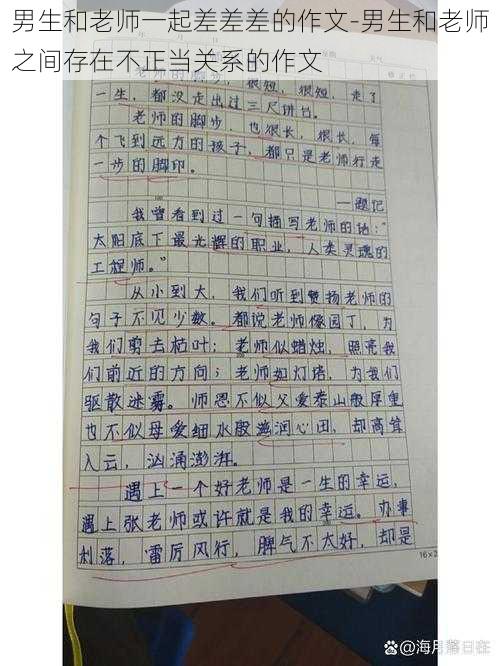 男生和老师一起差差差的作文-男生和老师
之间存在不正当关系的作文
很短，很短，走了
一生，都没走出过三尺讲台。
老师的脚步，也很长，很长，每
个飞到远方的孩子，都只是老师行走
一步的脚印。
——题记
我曾看到过一句描写老师的话："
太阳底下最光辉的职业，人类灵魂的
工程师。"
从小到大，我们听到赞扬老师的
句子不见少数。都说老师像园丁，为
我们剪去枯叶；老师似蜡烛，照亮我
们前近的方向；老师如灯塔，为我们
驱散迷雾。师恩不似父爱泰山般厚重
也不似母爱细水般滋润心田，却高耸
入云，汹涌澎湃。
遇上一个好老师是一生的幸运，
遇上张老师或许就是我的幸运。办事
利落，雷厉风行，脾气不太好，却是
16×2
@海月